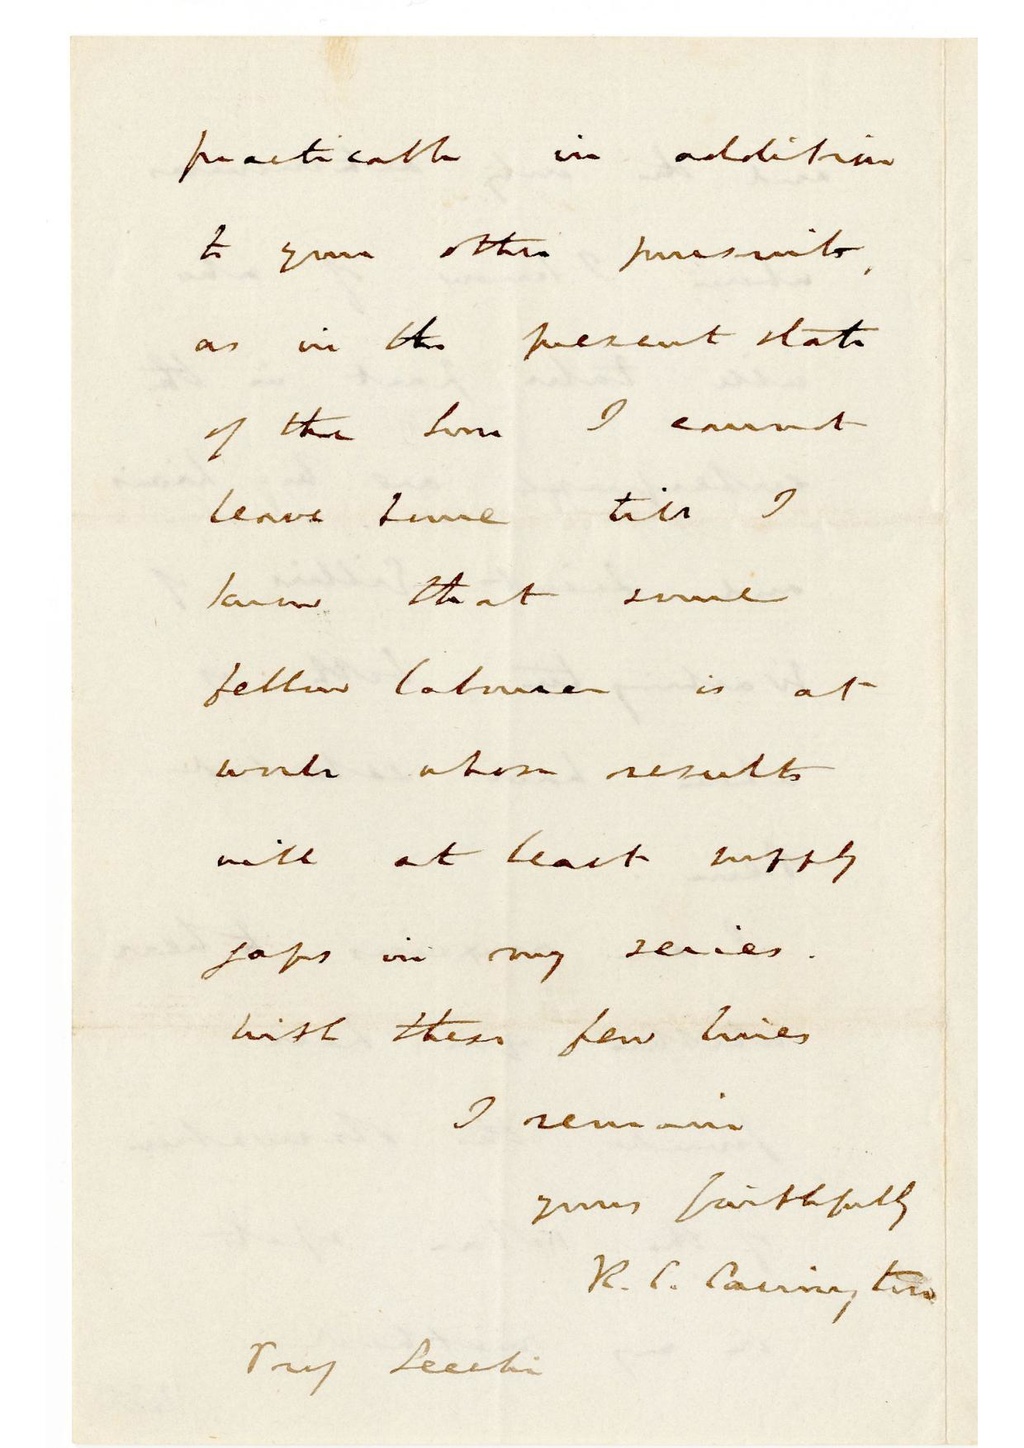 practicable in addition
to your other pursuits,
as in the present state
of the Sun I cannot
leave home till I
know that some
fellow labourer is at
work whose results
will at least supply
gaps in my series.
With these few lines
I remain
yours faithfully
R. C. Carrington
Prof Secchi